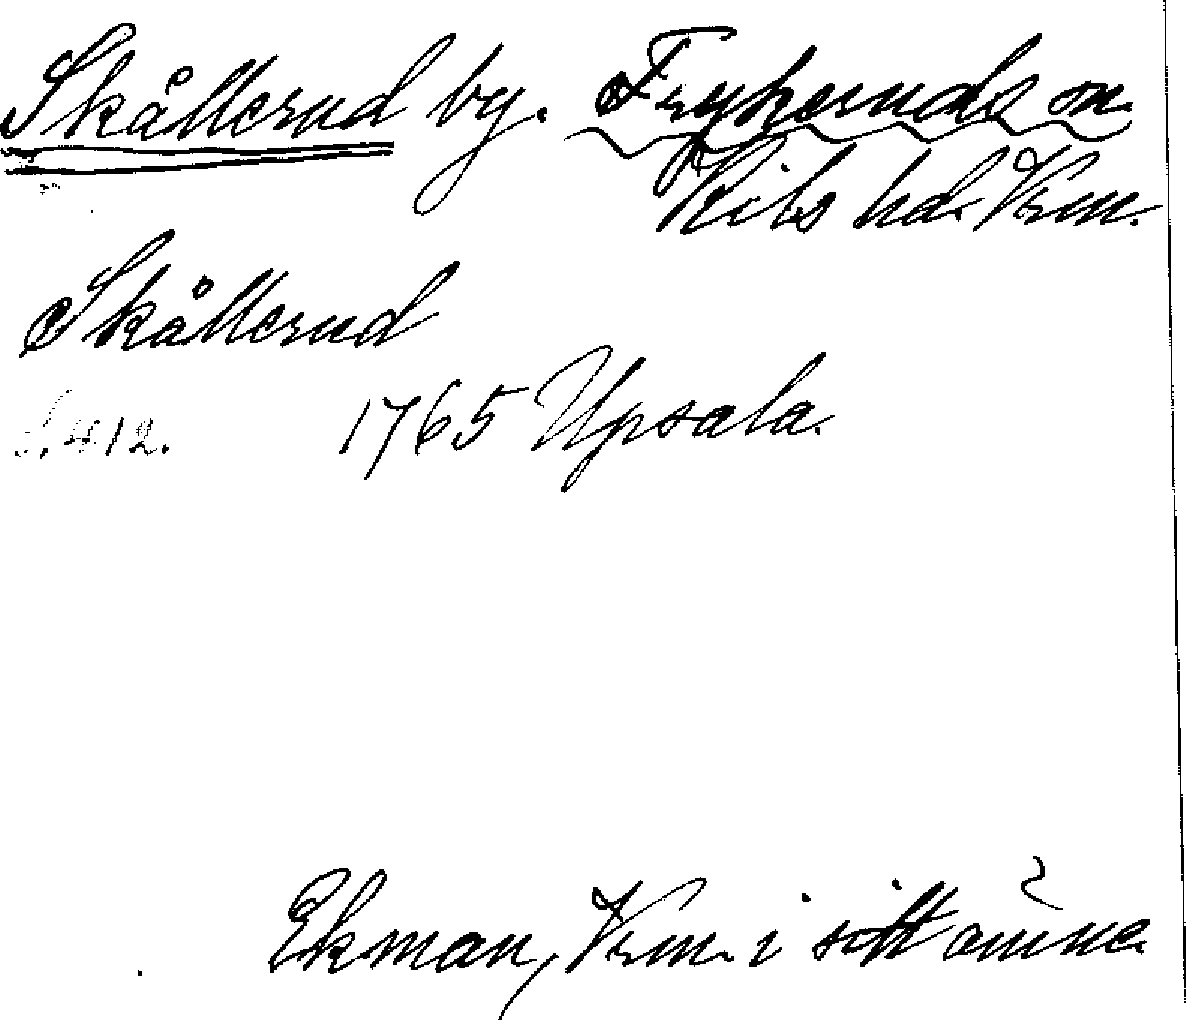 Skållerud by. Frykeruds sn.
Kils hd. Vrm.
Skållerud
S. 412. 1765 Upsala.
Ekman, Vrm. i sitt ämne